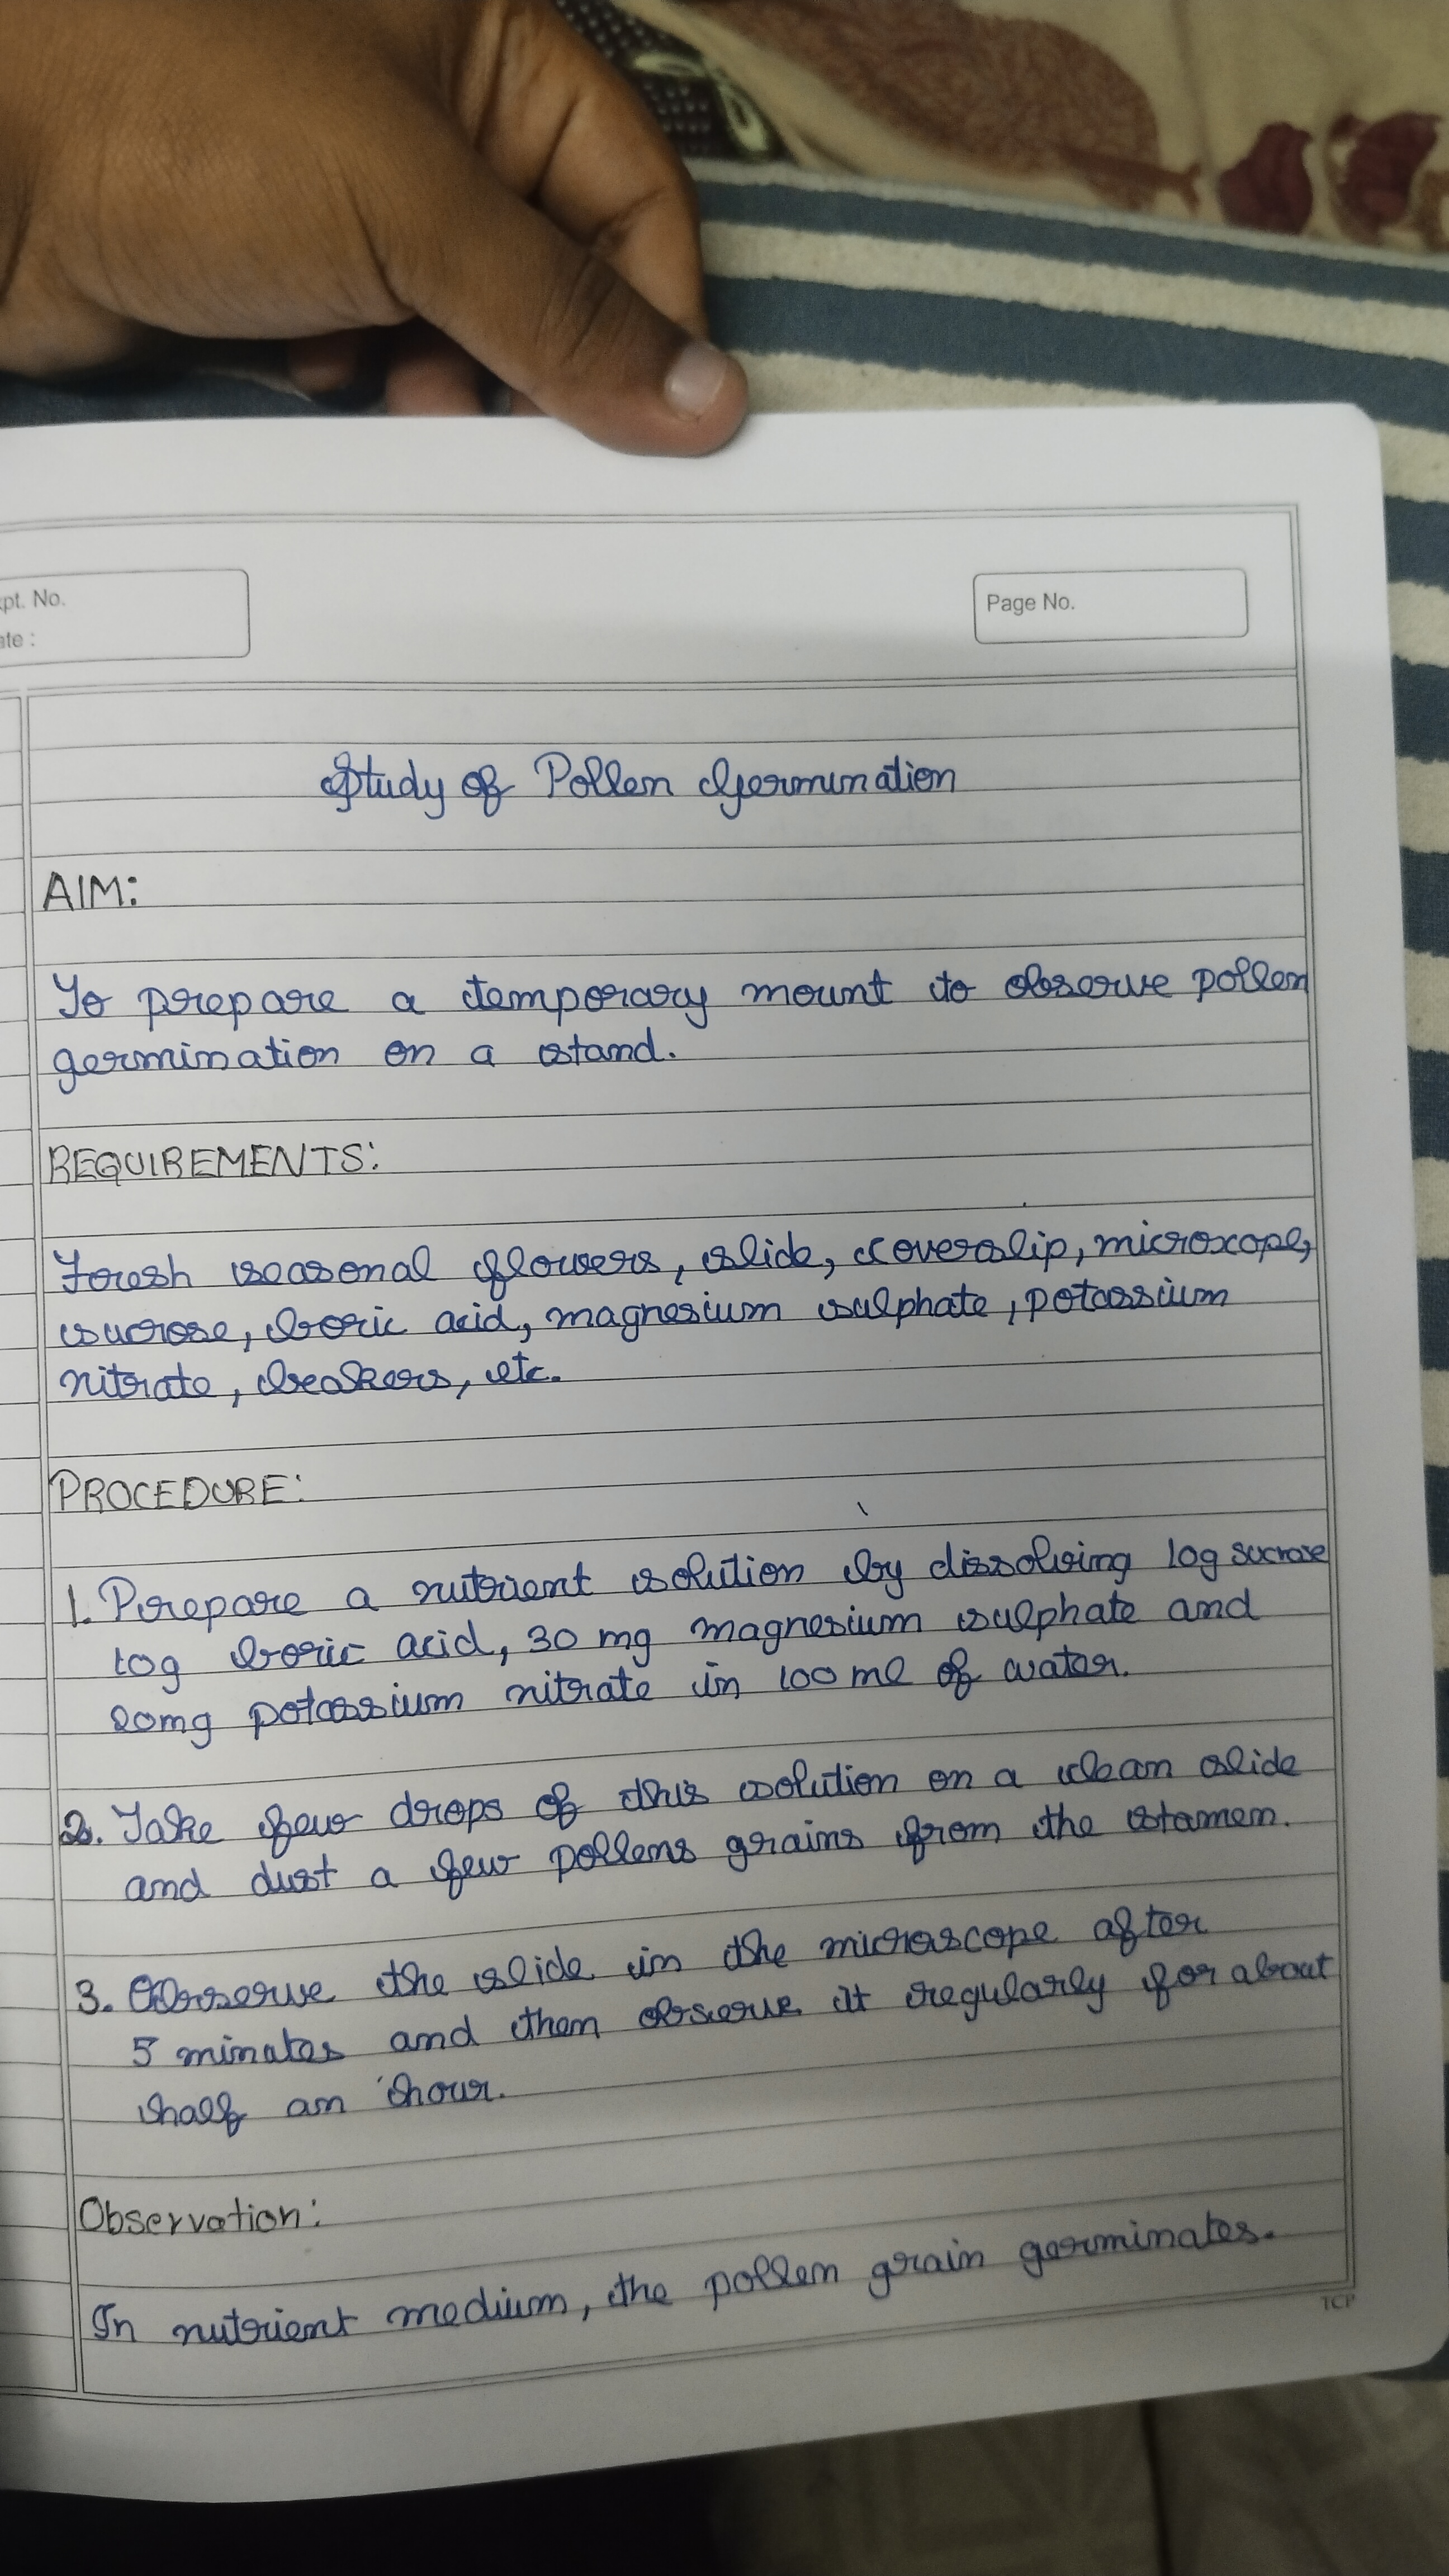 pt. No.
ate :
Page No.
Study of Pollen Germination
AIM:
To prepare a temporary mount to observe pollen
germination on a stand.
REQUIREMENTS:
Fresh seasonal flowers, slide, coverslip, microxope,
sucrose, boric acid, magnesium sulphate, potassium
nitrate, beakers, etc.
PROCEDURE:
1. Prepare a nutrient solution by dissolving 10g sucrose
10g boric acid, 30 mg magnesium sulphate and
20mg potassium nitrate in 100 ml of water.
2. Take few drops of this solution on a clean slide
and dust a few pollens grains from the stamen.
3. Observe the slide in the microscope after
5 minates and then observe it regularly for about
half an hour.
Observation:
In nutrient medium, the pollen grain germinates.
TCP